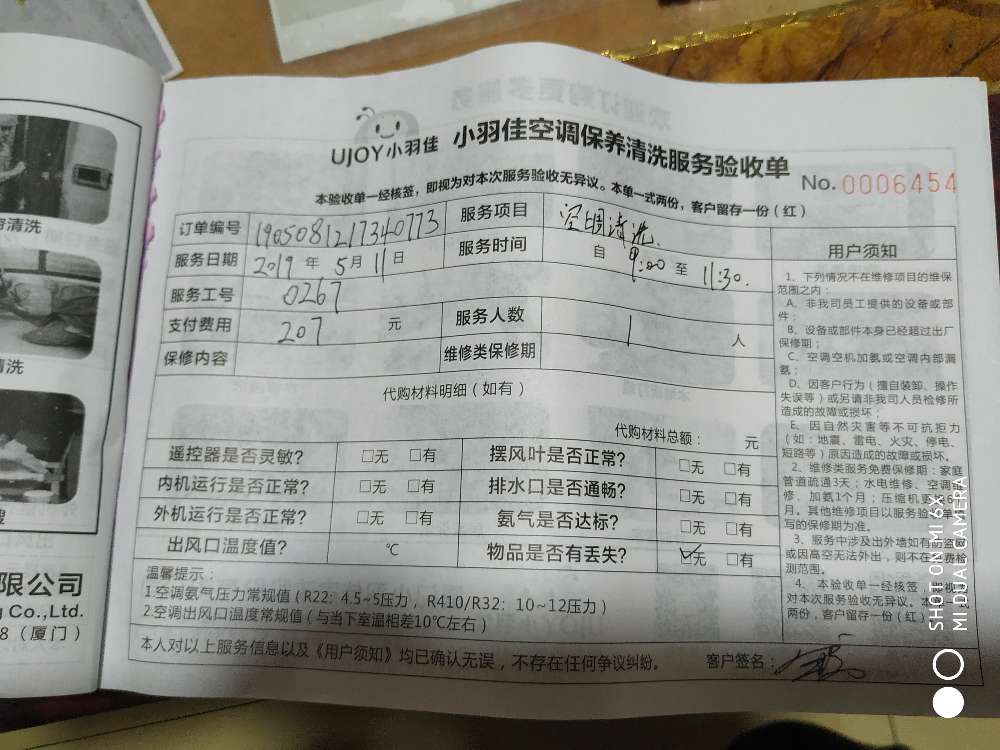 容清洗
清洗
限公司
g Co.,Ltd.
8（厦门）
UJOY小羽佳 小羽佳空调保养清洗服务验收单
No. 0006454
本验收单一经核签，即视为对本次服务验收无异议。本单一式两份，客户留存一份（红）
订单编号 1905081217340773 服务项目 空调清洗
服务日期 2019 年 5 月 11 日 服务时间 自 9:00 至 11:30.
服务工号 0267
支付费用 207 元 服务人数 1 人
保修内容 维修类保修期
代购材料明细（如有）
代购材料总额： 元
遥控器是否灵敏？ □无 □有 摆风叶是否正常？ □无 □有
内机运行是否正常？ □无 □有 排水口是否通畅？ □无 □有
外机运行是否正常？ □无 □有 氨气是否达标？ □无 □有
出风口温度值？ ℃ 物品是否有丢失？ ☑无 □有
温馨提示：
1.空调氨气压力常规值（R22：4.5~5压力，R410/R32：10~12压力）
2.空调出风口温度常规值（与当下室温相差10℃左右）
本人对以上服务信息以及《用户须知》均已确认无误，不存在任何争议纠纷。 客户签名：
用户须知
1、下列情况不在维修项目的维保
范围之内：
A、非我司员工提供的设备或部
件；
B、设备或部件本身已经超过出厂
保修期；
C、空调空机加氨或空调内部漏
氨；
D、因客户行为（擅自装卸、操作
失误等）或另请非我司人员检修所
造成的故障或损坏；
E、因自然灾害等不可抗拒力
（如：地震、雷电、火灾、停电、
短路等）原因造成的故障或损坏。
2、维修类服务免费保修期：家庭
管道疏通3天；水电维修、空调维
修、加氨1个月；压缩机更换6
月。其他维修项目以服务验收单
写的保修期为准。
3、服务中涉及出外墙如有防盗网
或因高空无法外出，则不在免费检
测范围。
4、本验收单一经核签，即视
对本次服务验收无异议。本单一式
两份，客户留存一份（红）
SHOT ON MI 6X
MI DUAL CAMERA